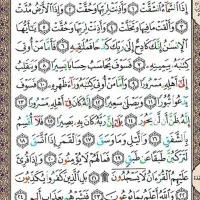 إِذَا ٱلسَّمَآءُ ٱنشَقَّتْ ١ وَأَذِنَتْ لِرَبِّهَا وَحُقَّتْ ٢ وَإِذَا ٱلْأَرْضُ مُدَّتْ
٣ وَأَلْقَتْ مَا فِيهَا وَتَخَلَّتْ ٤ وَأَذِنَتْ لِرَبِّهَا وَحُقَّتْ ٥ يَٰٓأَيُّهَا
ٱلْإِنسَٰنُ إِنَّكَ كَادِحٌ إِلَىٰ رَبِّكَ كَدْحًا فَمُلَٰقِيهِ ٦ فَأَمَّا مَنْ أُوتِىَ
كِتَٰبَهُۥ بِيَمِينِهِۦ ٧ فَسَوْفَ يُحَاسَبُ حِسَابًا يَسِيرًا ٨ وَيَنقَلِبُ
إِلَىٰٓ أَهْلِهِۦ مَسْرُورًا ٩ وَأَمَّا مَنْ أُوتِىَ كِتَٰبَهُۥ وَرَآءَ ظَهْرِهِۦ ١٠ فَسَوْفَ
يَدْعُوا۟ ثُبُورًا ١١ وَيَصْلَىٰ سَعِيرًا ١٢ إِنَّهُۥ كَانَ فِىٓ أَهْلِهِۦ مَسْرُورًا ١٣
إِنَّهُۥ ظَنَّ أَن لَّن يَحُورَ ١٤ بَلَىٰٓ إِنَّ رَبَّهُۥ كَانَ بِهِۦ بَصِيرًا ١٥ فَلَآ أُقْسِمُ
بِٱلشَّفَقِ ١٦ وَٱلَّيْلِ وَمَا وَسَقَ ١٧ وَٱلْقَمَرِ إِذَا ٱتَّسَقَ ١٨
لَتَرْكَبُنَّ طَبَقًا عَن طَبَقٍ ١٩ فَمَا لَهُمْ لَا يُؤْمِنُونَ ٢٠ وَإِذَا قُرِئَ
عَلَيْهِمُ ٱلْقُرْءَانُ لَا يَسْجُدُونَ ٢١ بَلِ ٱلَّذِينَ كَفَرُوا۟ يُكَذِّبُونَ
٢٢ وَٱللَّهُ أَعْلَمُ بِمَا يُوعُونَ ٢٣ فَبَشِّرْهُم بِعَذَابٍ أَلِيمٍ ٢٤